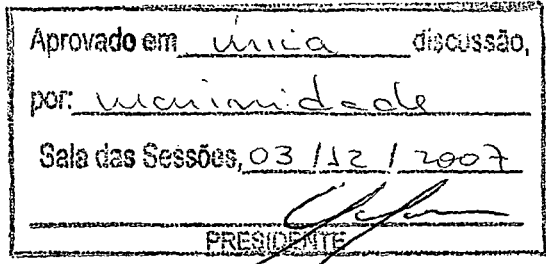 Aprovado em única discussão,
por: unanimidade
Sala das Sessões, 03 / 12 / 2007
PRESIDENTE